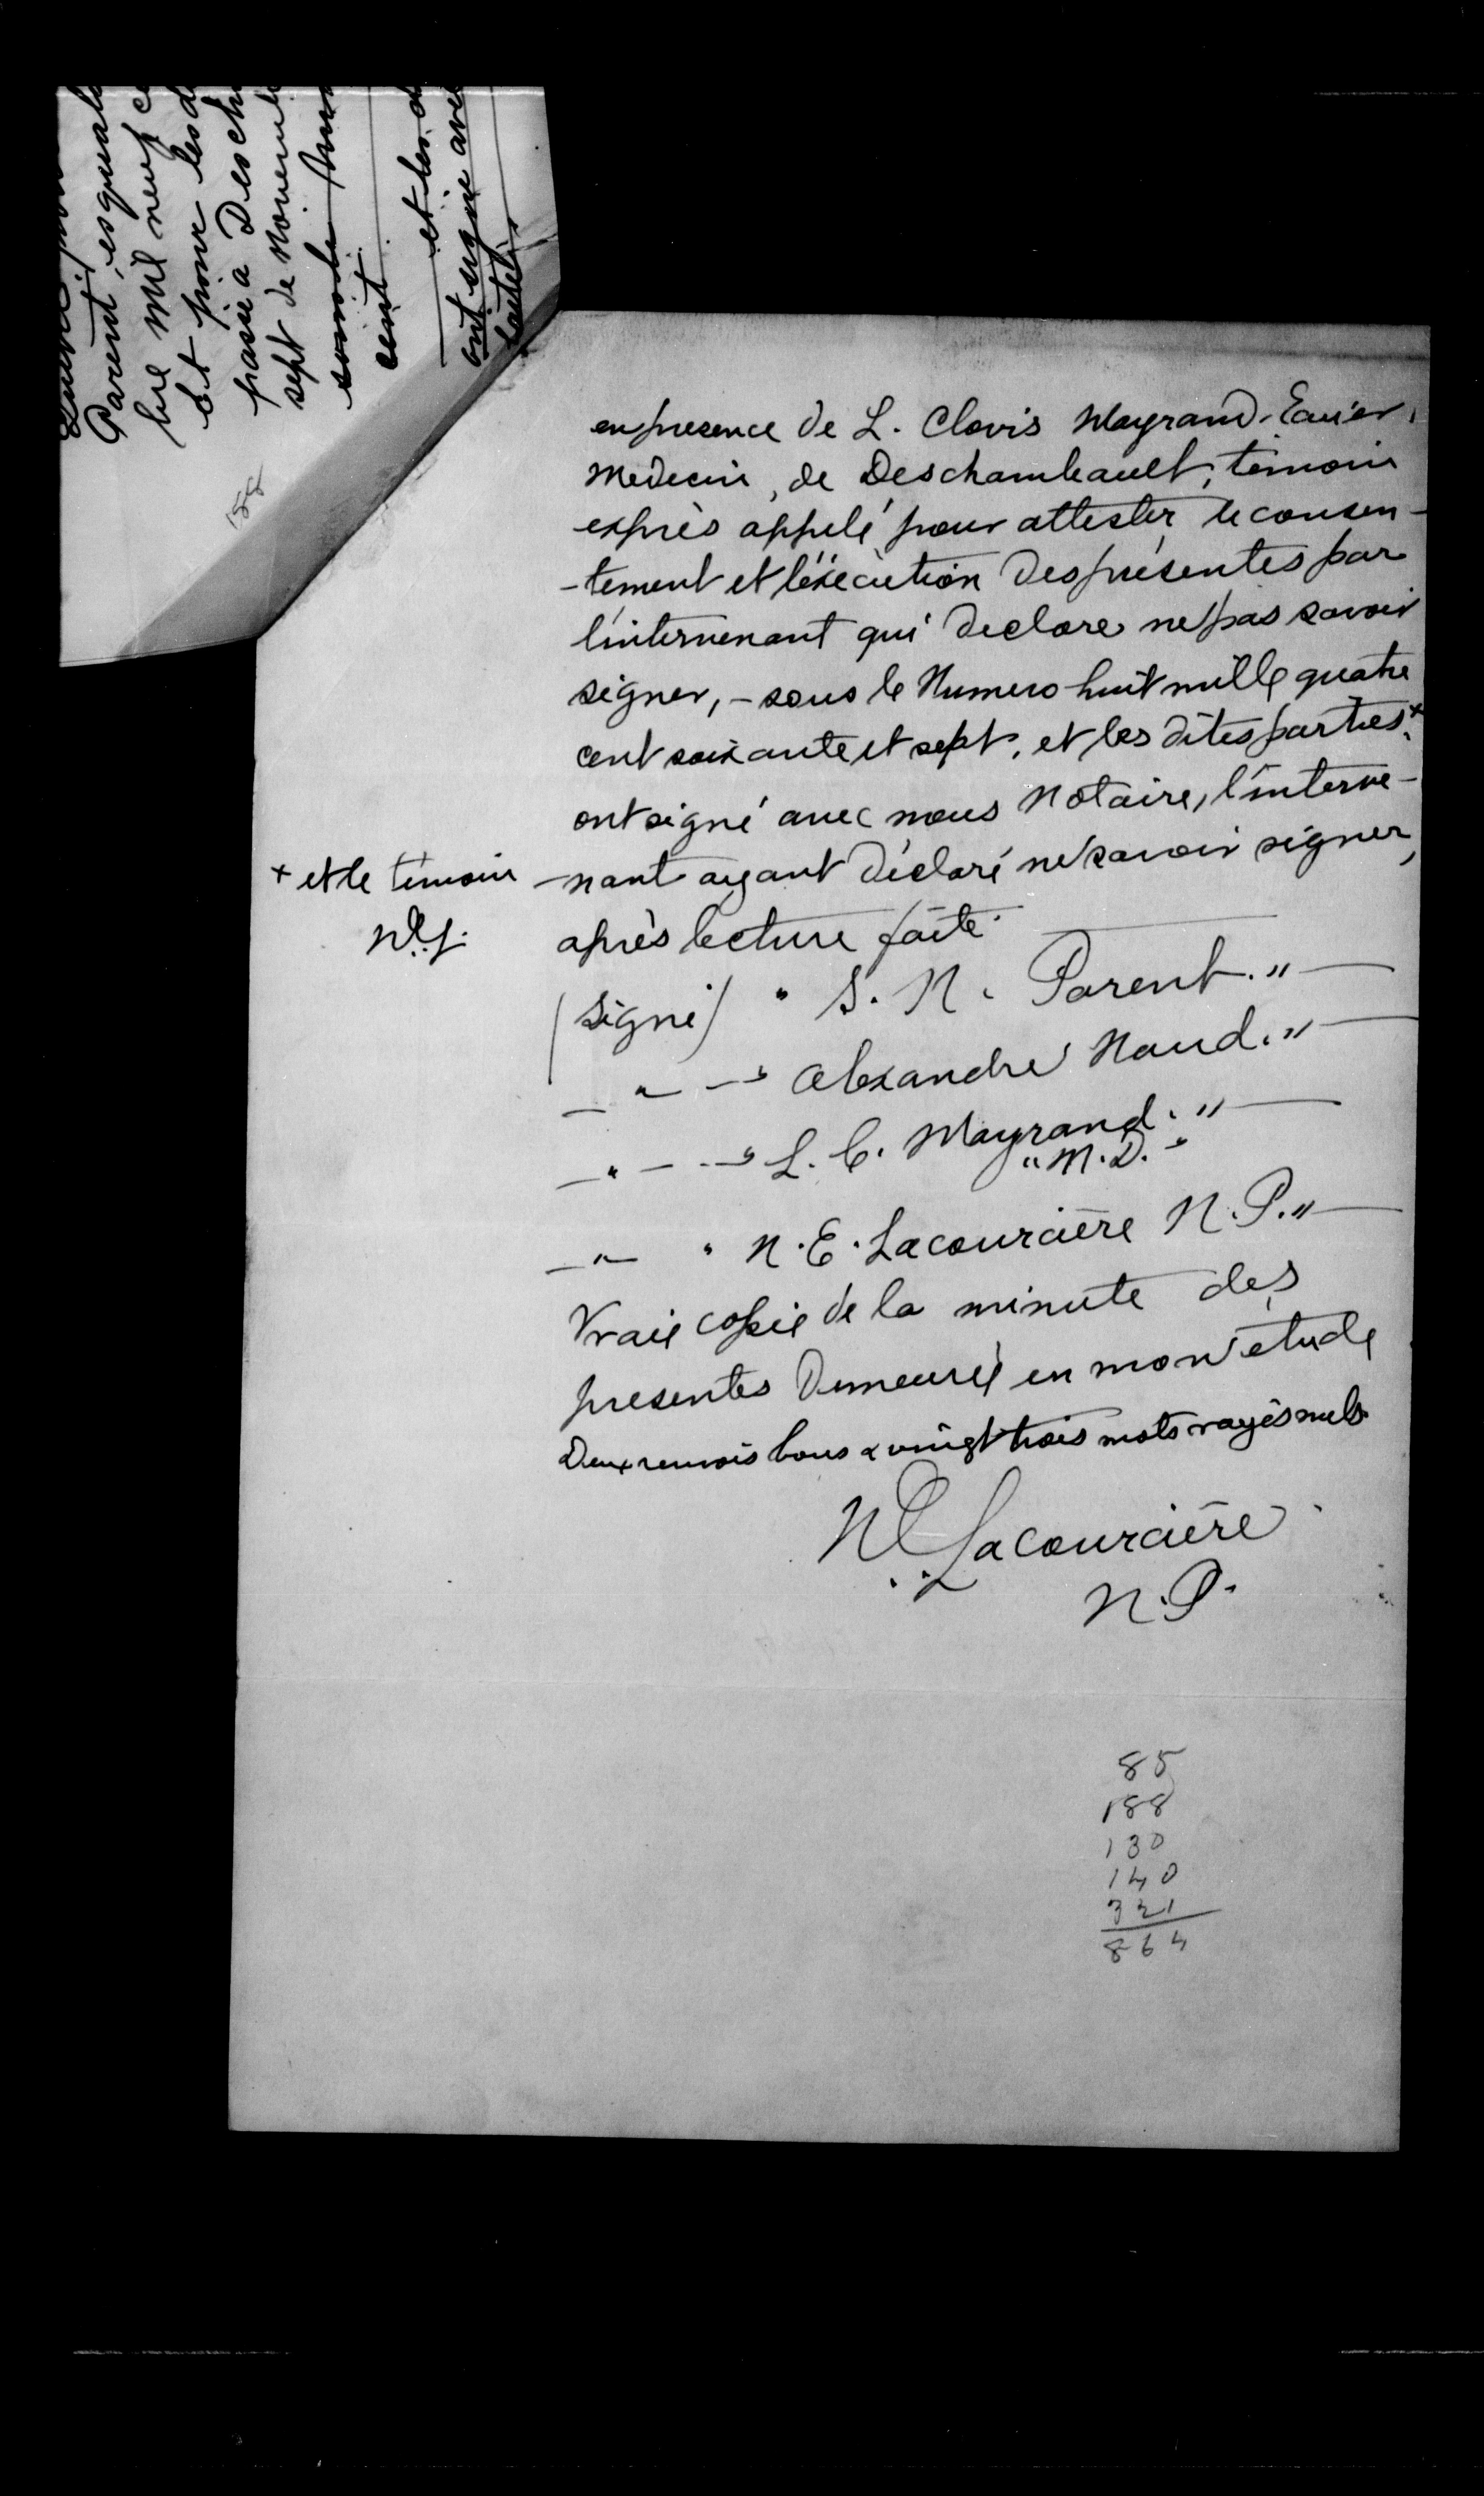 Parent, esquali
bre mil neuf ce
Et pour les d
passé a Desch
sept de novemb
cent
et les d
ont signé avec
188
en presence de L. Clovis Mayrand Ecuier,
Medecin, de Deschambault, témoin
exprès appelé pour attester le consen-
-tement et l'éxécution des présentes par
l'intervenant qui declare ne pas savoir
signer, - sous le Numero huit mille quatre
cent soixante et sept, et les dites parties +
ont signé avec nous Notaire, l'interve-
+ et le témoin
-nant ayant déclaré ne savoir signer,
N.E.L.
après lecture faite.
(Signé) " S. N. Parent. "
— " — " Alexandre Naud. "
— " — " L. C. Mayrand. "
" M.D. "
— " " N. E. Lacourcière N. P. "
Vraie copie de la minute des
presentes demeurée en mon étude
Deux renvois bons & vingt trois mots rayés nuls.
N E Lacourcière
N. P.
85
188
130
140
321
864